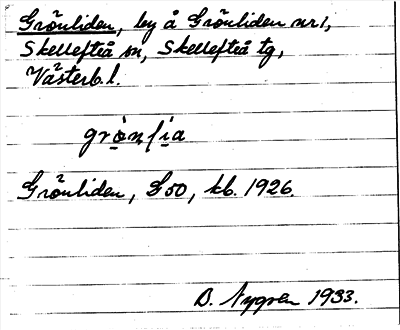 Grönliden, by å Grönliden nr 1,
Skellefteå sn, Skellefteå tg,
Västerb. l.
Grönliden, G50, kb. 1926.
D. Nygren 1933.